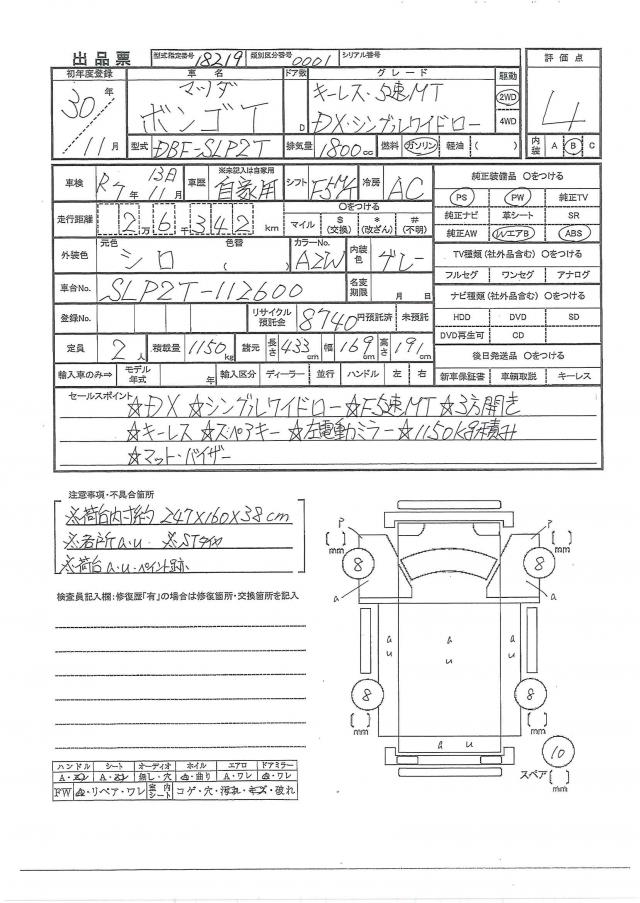 出品票 型式指定番号 18219 類別区分番号 0001 シリアル番号
初年度登録 車名 ドア数 グレード 駆動 評価点
30年 マツダ キーレス・5速MT 2WD 4
11月 ボンゴT D DX・シングルワイドロー 4WD
型式 DBF-SLP2T 排気量 1800cc 燃料 ガソリン 軽油 ( ) 内装 A B C
車検 R7年 11月 13日 車歴 ※未記入は自家用 自家用 シフト F5MT 冷房 AC 純正装備品 〇をつける
PS PW 純正TV
走行距離 2万 6千 342 km 〇をつける
マイル $(交換) *(改ざん) #(不明) 純正ナビ 革シート SR
純正AW エアB ABS
外装色 元色 シロ 色替 ( ) カラーNo. A2W 内装色 グレー TV種類(社外品含む) 〇をつける
フルセグ ワンセグ アナログ
車台No. SLP2T-112600 名変期限 月 日 ナビ種類(社外品含む) 〇をつける
登録No. リサイクル預託金 8740 円預託済 未預託 HDD DVD SD
DVD再生可 CD
定員 2人 積載量 1150kg 諸元 長さ 433cm 幅 169cm 高さ 191cm 後日発送品 〇をつける
輸入車のみ⇒ モデル年式 年 輸入区分 ディーラー 並行 ハンドル 左 右 新車保証書 車輌取説 キーレス
セールスポイント
☆DX ☆シングルワイドロー ☆F5速MT ☆3方開き
☆キーレス ☆スペアキー ☆左電動ミラー ☆1150kg積み
☆マット・バイザー
注意事項・不具合箇所
※荷台内寸約 247×160×38cm
※各所a.u ※STスレ
※荷台a.u・ペイント跡
検査員記入欄:修復歴「有」の場合は修復箇所・交換箇所を記入
P P
[ ]mm [ ]mm
8 8
a a
a u a u a u
8 8
[ ]mm [ ]mm
a u
10
スペア [ ]mm
ハンドル シート オーディオ ホイル エアロ ドアミラー
A・ス A・ス 無し・穴 a・曲り A・ワレ a・ワレ
FW a・リペア・ワレ 室内シート コゲ・穴・汚れ・キズ・破れ